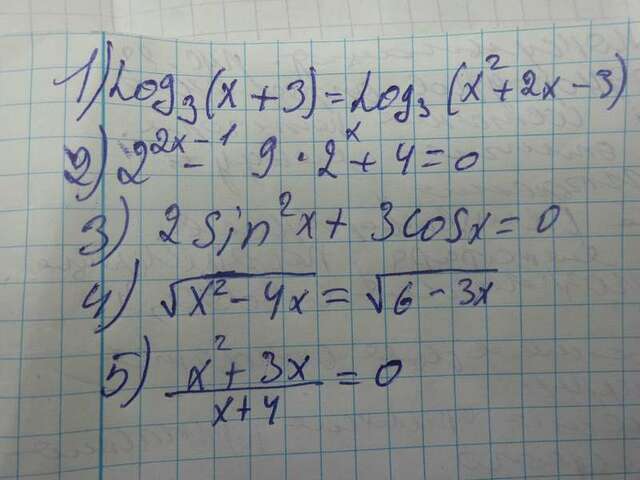 1) Log₃(x+3)=Log₃(x²+2x-3)
2) 2²ˣ⁻¹ - 9·2ˣ+4=0
3) 2 sin²x+3cosx=0
4) √(x²-4x)=√(6-3x)
5) (x²+3x)/(x+4)=0